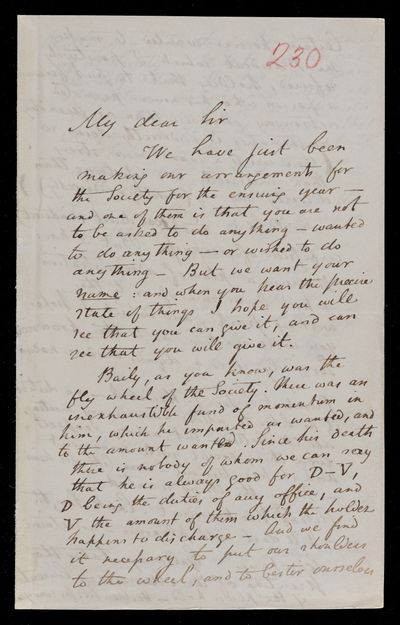 230
My dear Sir
We have just been
making our arrangements for
the Society for the ensuing year —
and one of them is that you are not
to be asked to do anything — wanted
to do anything — or wished to do
anything — But we want your
name : and when you hear the precise
state of things I hope you will
see that you can give it, and can
see that you will give it.
Baily, as you know, was the
fly wheel of the Society. There was an
inexhaustible fund of momentum in
him, which he imparted as wanted, and
to the amount wanted. Since his death
there is nobody of whom we can say
that he is always good for D–V,
D being the duties of any office, and
V the amount of them which the holder
happens to discharge — And we find
it necessary to put our shoulders
to the wheel, and to bestir ourselves